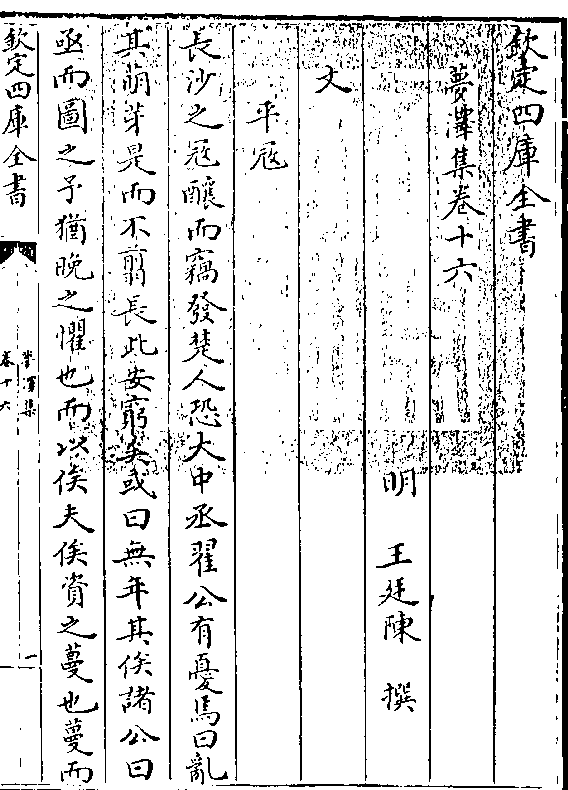 欽定四庫全書
夢澤集卷十六
明 王廷陳 撰
文
平宼
長沙之宼釀而竊發楚人恐大中丞翟公有憂焉曰亂
其萌芽是而不翦長此安窮矣或曰無年其俟諸公曰
亟而圖之予猶晚之懼也而以俟夫俟資之蔓也蔓而
欽定四庫全書
夢澤集
卷十六
一